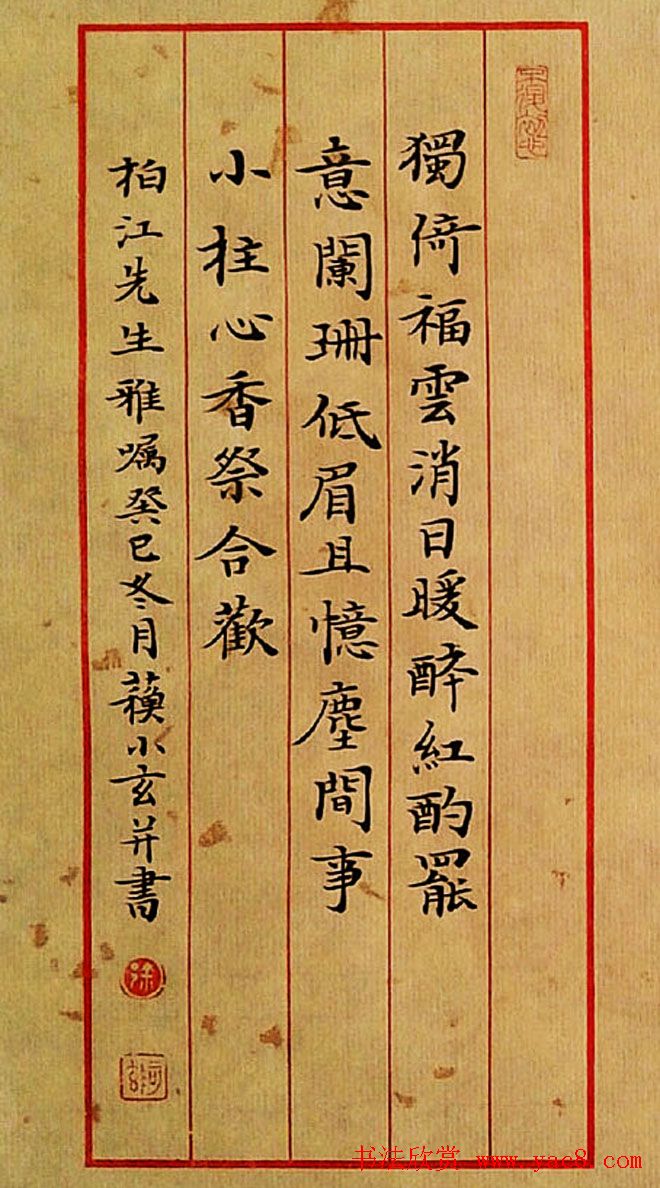 獨倚福雲消日暖醉紅酌罷
意闌珊低眉且憶塵間事
小柱心香祭合歡
柏江先生雅嘱癸巳冬月蘋小玄并書
徐
书法欣赏 www.yac8.com